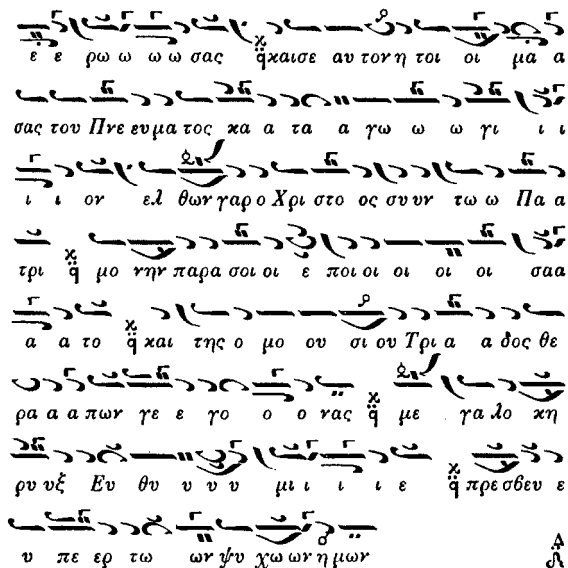 ε ε ρω ω ω ω σας και σε αυ τον η τοι οι μα α
σας του Πνε ευ μα τος κα α τα α γω ω ω γι ι ι
ι ι ον ελ θων γαρ ο Χρι στο ος συ υν τω ω Πα α
τρι μο νην παρα σοι οι ε ποι οι οι οι οι σαα
α α το και της ο μο ου σι ου Τρι α α δος θε
ρα α α πων γε ε γο ο ο νας με γα λο κη
ρυ υξ Ευ θυ υ υ υ μι ι ι ι ε πρεσβευ ε
υ πε ερ τω ων ψυ χω ων η μων